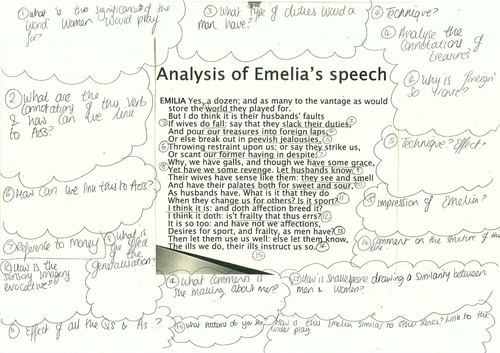 ① What is the significance of the
word women would play
for?
③ What type of duties would a
man have?
④ Technique?
④ Analyse the
connotations of
treasures?
④ Why is 'foreign'
so
Analysis of Emelia's speech
② What are the
connotations of this verb
& how can we link
to AO3?
EMILIA Yes, a dozen; and as many to the vantage as would
store the world they played for.
But I do think it is their husbands' faults
If wives do fall: say that they slack their duties,
And pour our treasures into foreign laps,
Or else break out in peevish jealousies,
Throwing restraint upon us; or say they strike us,
Or scant our former having in despite;
Why, we have galls, and though we have some grace,
Yet have we some revenge. Let husbands know
Their wives have sense like them: they see and smell
And have their palates both for sweet and sour,
As husbands have. What is it that they do
When they change us for others? Is it sport?
I think it is: and doth affection breed it?
I think it doth: is't frailty that thus errs?
It is so too: and have not we affections,
Desires for sport, and frailty, as men have?
Then let them use us well: else let them know,
The ills we do, their ills instruct us so.
⑤ Technique? Effect?
⑥ How can we link this to AO3?
impression of Emelia?
⑦ Reference to money?
What is
the effect
of the
generalisation?
How is the
sensory imagery
evocative?
Comment on the structure of this
line.
What comments is
she making about men?
How is Shakespeare drawing a similarity between
men & women?
Effect of all the Q's & A's..?
What patterns do you see?
How is this Emelia similar to other scenes? Link to the
wider play